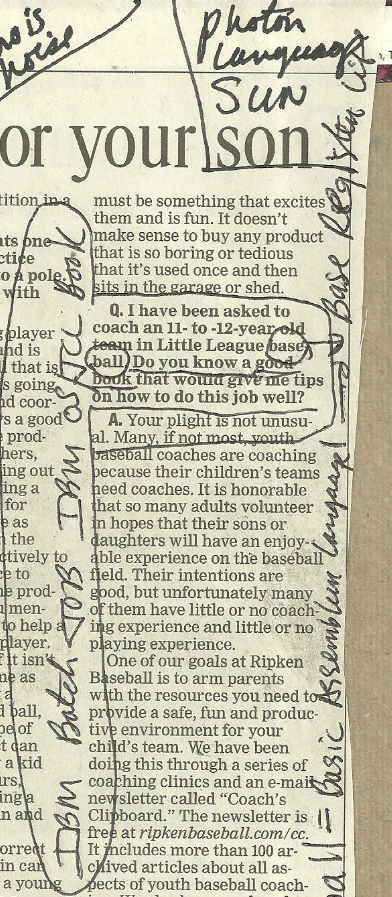 no is
noise
Photon
Language
SUN
or your son
tition in a
ats one
ctice
to a pole.
with
player
and is
ll that is
s going
nd coor-
s a good
prod-
hers,
ing out
ing a
for
e as
n the
ctively to
ce to
e prod-
men-
to help a
player.
f it isn't
me as
a
d ball,
pe of
t can
a kid
urs,
ing a
n and
orrect
in can
a young
must be something that excites
them and is fun. It doesn't
make sense to buy any product
that is so boring or tedious
that it's used once and then
sits in the garage or shed.
Q. I have been asked to
coach an 11- to -12-year old
team in Little League base-
ball. Do you know a good
book that would give me tips
on how to do this job well?
A. Your plight is not unusu-
al. Many, if not most, youth
baseball coaches are coaching
because their children's teams
need coaches. It is honorable
that so many adults volunteer
in hopes that their sons or
daughters will have an enjoy-
able experience on the baseball
field. Their intentions are
good, but unfortunately many
of them have little or no coach-
ing experience and little or no
playing experience.
One of our goals at Ripken
Baseball is to arm parents
with the resources you need to
provide a safe, fun and produc-
tive environment for your
child's team. We have been
doing this through a series of
coaching clinics and an e-mail
newsletter called "Coach's
Clipboard." The newsletter is
free at ripkenbaseball.com/cc.
It includes more than 100 ar-
chived articles about all as-
pects of youth baseball coach-
IBM Batch JOB IBM OS JCL Book
all = Basic Assembler Language! → Base Register